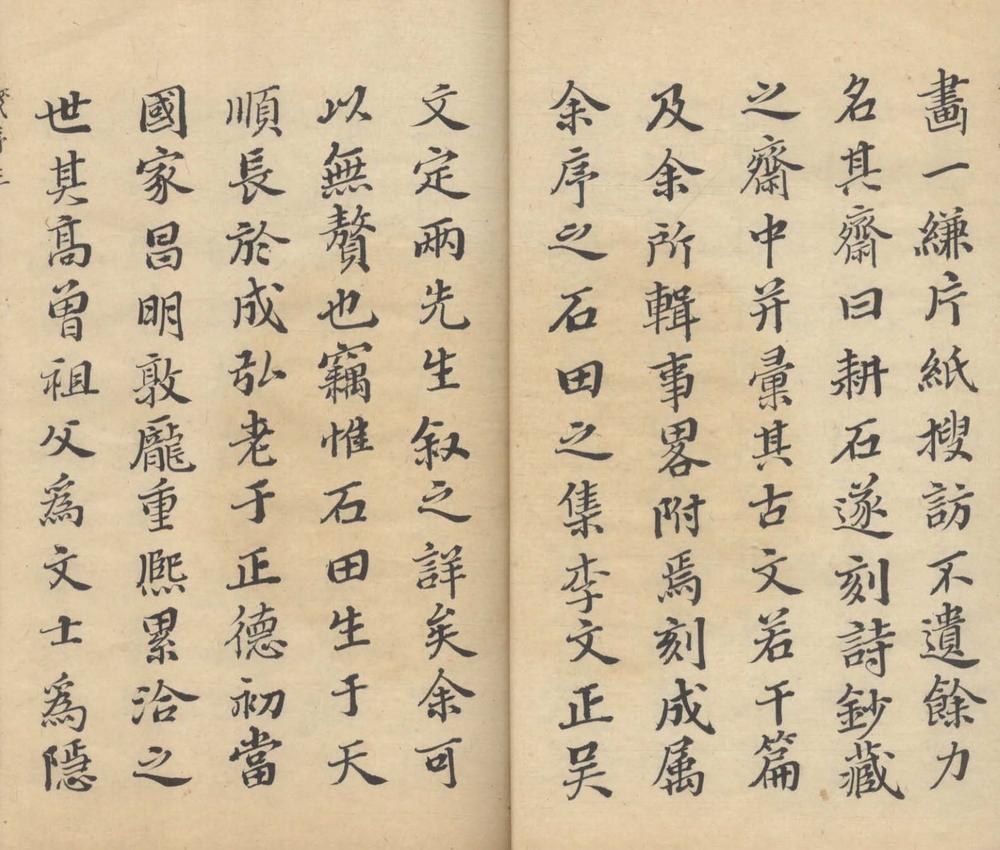 畫一縑片紙搜訪不遺餘力
名其齋曰耕石遂刻詩鈔藏
之齋中并彙其古文若干篇
及余所輯事畧附焉刻成属
余序之石田之集李文正吴
文定兩先生叙之詳矣余可
以無贅也竊惟石田生于天
順長於成弘老于正德初當
國家昌明敦龐重熈累洽之
世其髙曽祖父爲文士爲隱